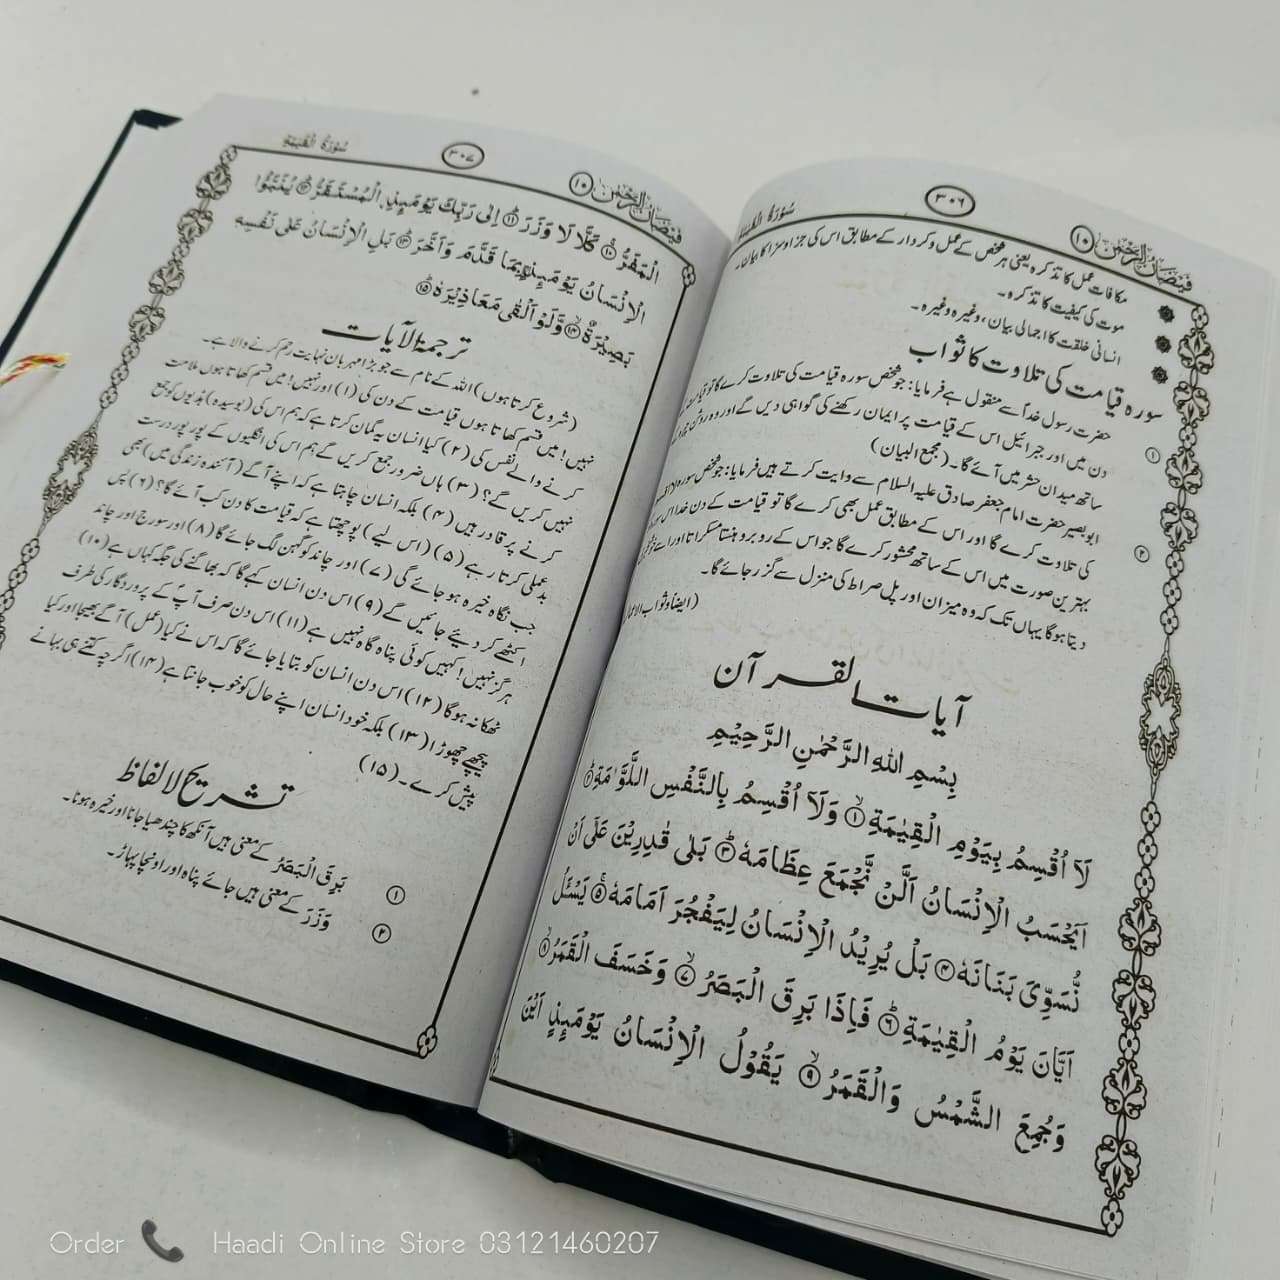 سُوْرَةُ الْقِيٰمَةِ
۳۰۶
فَيْضَانُ الرَّحْمٰن ۱۰
مکافات عمل کا تذکرہ یعنی ہر شخص کے عمل و کردار کے مطابق اس کی جزا و سزا کا بیان۔
موت کی کیفیت کا تذکرہ۔
انسانی خلقت کا اجمالی بیان، وغیرہ وغیرہ۔
سورہ قیامت کی تلاوت کا ثواب
۱ حضرت رسول خداؐ سے منقول ہے فرمایا: جو شخص سورہ قیامت کی تلاوت کرے گا تو قیامت کے
دن میں اور جبرائیل اس کے قیامت پر ایمان رکھنے کی گواہی دیں گے اور وہ روشن
ساتھ میدان حشر میں آئے گا۔ (مجمع البیان)
۲ ابو بصیر حضرت امام جعفر صادق علیہ السلام سے روایت کرتے ہیں فرمایا: جو شخص سورہ
کی تلاوت کرے گا اور اس کے مطابق عمل بھی کرے گا تو قیامت کے دن خدا اس
بہترین صورت میں اس کے ساتھ محشور کرے گا جو اس کے روبرو ہنستا مسکراتا اور اسے
دیتا ہوگا یہاں تک کہ وہ میزان اور پل صراط کی منزل سے گزر جائے گا۔
(ایضاً و ثواب
آیات القرآن
بِسْمِ اللهِ الرَّحْمٰنِ الرَّحِيْمِ
لَآ اُقْسِمُ بِيَوْمِ الْقِيٰمَةِ ۙ۱ وَلَآ اُقْسِمُ بِالنَّفْسِ اللَّوَّامَةِ ؕ۲
اَيَحْسَبُ الْاِنْسَانُ اَلَّنْ نَّجْمَعَ عِظَامَهٗ ؕ۳ بَلٰى قٰدِرِيْنَ عَلٰٓى اَنْ
نُّسَوِّىَ بَنَانَهٗ ۴ بَلْ يُرِيْدُ الْاِنْسَانُ لِيَفْجُرَ اَمَامَهٗ ۚ۵ يَسْـَٔلُ
اَيَّانَ يَوْمُ الْقِيٰمَةِ ؕ۶ فَاِذَا بَرِقَ الْبَصَرُ ۙ۷ وَخَسَفَ الْقَمَرُ ۙ۸
وَجُمِعَ الشَّمْسُ وَالْقَمَرُ ۙ۹ يَقُوْلُ الْاِنْسَانُ يَوْمَئِذٍ اَيْنَ
سُوْرَةُ الْقِيٰمَةِ
۳۰۷
فَيْضَانُ الرَّحْمٰن ۱۰
الْمَفَرُّ ۚ۱۰ كَلَّا لَا وَزَرَ ؕ۱۱ اِلٰى رَبِّكَ يَوْمَئِذِ ۨالْمُسْتَقَرُّ ؕ۱۲ يُنَبَّؤُا
الْاِنْسَانُ يَوْمَئِذٍۭ بِمَا قَدَّمَ وَاَخَّرَ ؕ۱۳ بَلِ الْاِنْسَانُ عَلٰى نَفْسِهٖ
بَصِيْرَةٌ ۙ۱۴ وَّلَوْ اَلْقٰى مَعَاذِيْرَهٗ ؕ۱۵
ترجمۃ الآیات
(شروع کرتا ہوں) اللہ کے نام سے جو بڑا مہربان نہایت رحم کرنے والا ہے۔
نہیں! میں قسم کھاتا ہوں قیامت کے دن کی (۱) اور نہیں! میں قسم کھاتا ہوں ملامت
کرنے والے نفس کی (۲) کیا انسان یہ گمان کرتا ہے کہ ہم اس کی (بوسیدہ) ہڈیوں کو جمع
نہیں کریں گے؟ (۳) ہاں ضرور جمع کریں گے ہم اس کی انگلیوں کے پور پور درست
کرنے پر قادر ہیں (۴) بلکہ انسان چاہتا ہے کہ اپنے آگے (آئندہ زندگی میں) بھی
بدعملی کرتا رہے (۵) (اس لیے) پوچھتا ہے کہ قیامت کا دن کب آئے گا؟ (۶) پس
جب نگاہ خیرہ ہو جائے گی (۷) اور چاند کو گہن لگ جائے گا (۸) اور سورج اور چاند
اکٹھے کر دیئے جائیں گے (۹) اس دن انسان کہے گا کہ بھاگنے کی جگہ کہاں ہے (۱۰)
ہرگز نہیں! کہیں کوئی پناہ گاہ نہیں ہے (۱۱) اس دن صرف آپؐ کے پروردگار کی طرف
ٹھکانہ ہوگا (۱۲) اس دن انسان کو بتایا جائے گا کہ اس نے کیا (عمل) آگے بھیجا اور کیا
پیچھے چھوڑا (۱۳) بلکہ خود انسان اپنے حال کو خوب جانتا ہے (۱۴) اگرچہ کتنے ہی بہانے
پیش کرے۔ (۱۵)
تشریح الالفاظ
۱ بَرِقَ الْبَصَرُ کے معنی ہیں آنکھ کا چندھیا جانا اور خیرہ ہونا۔
۲ وَزَرَ کے معنی ہیں جائے پناہ اور اونچا پہاڑ۔
Order Haadi Online Store 03121460207